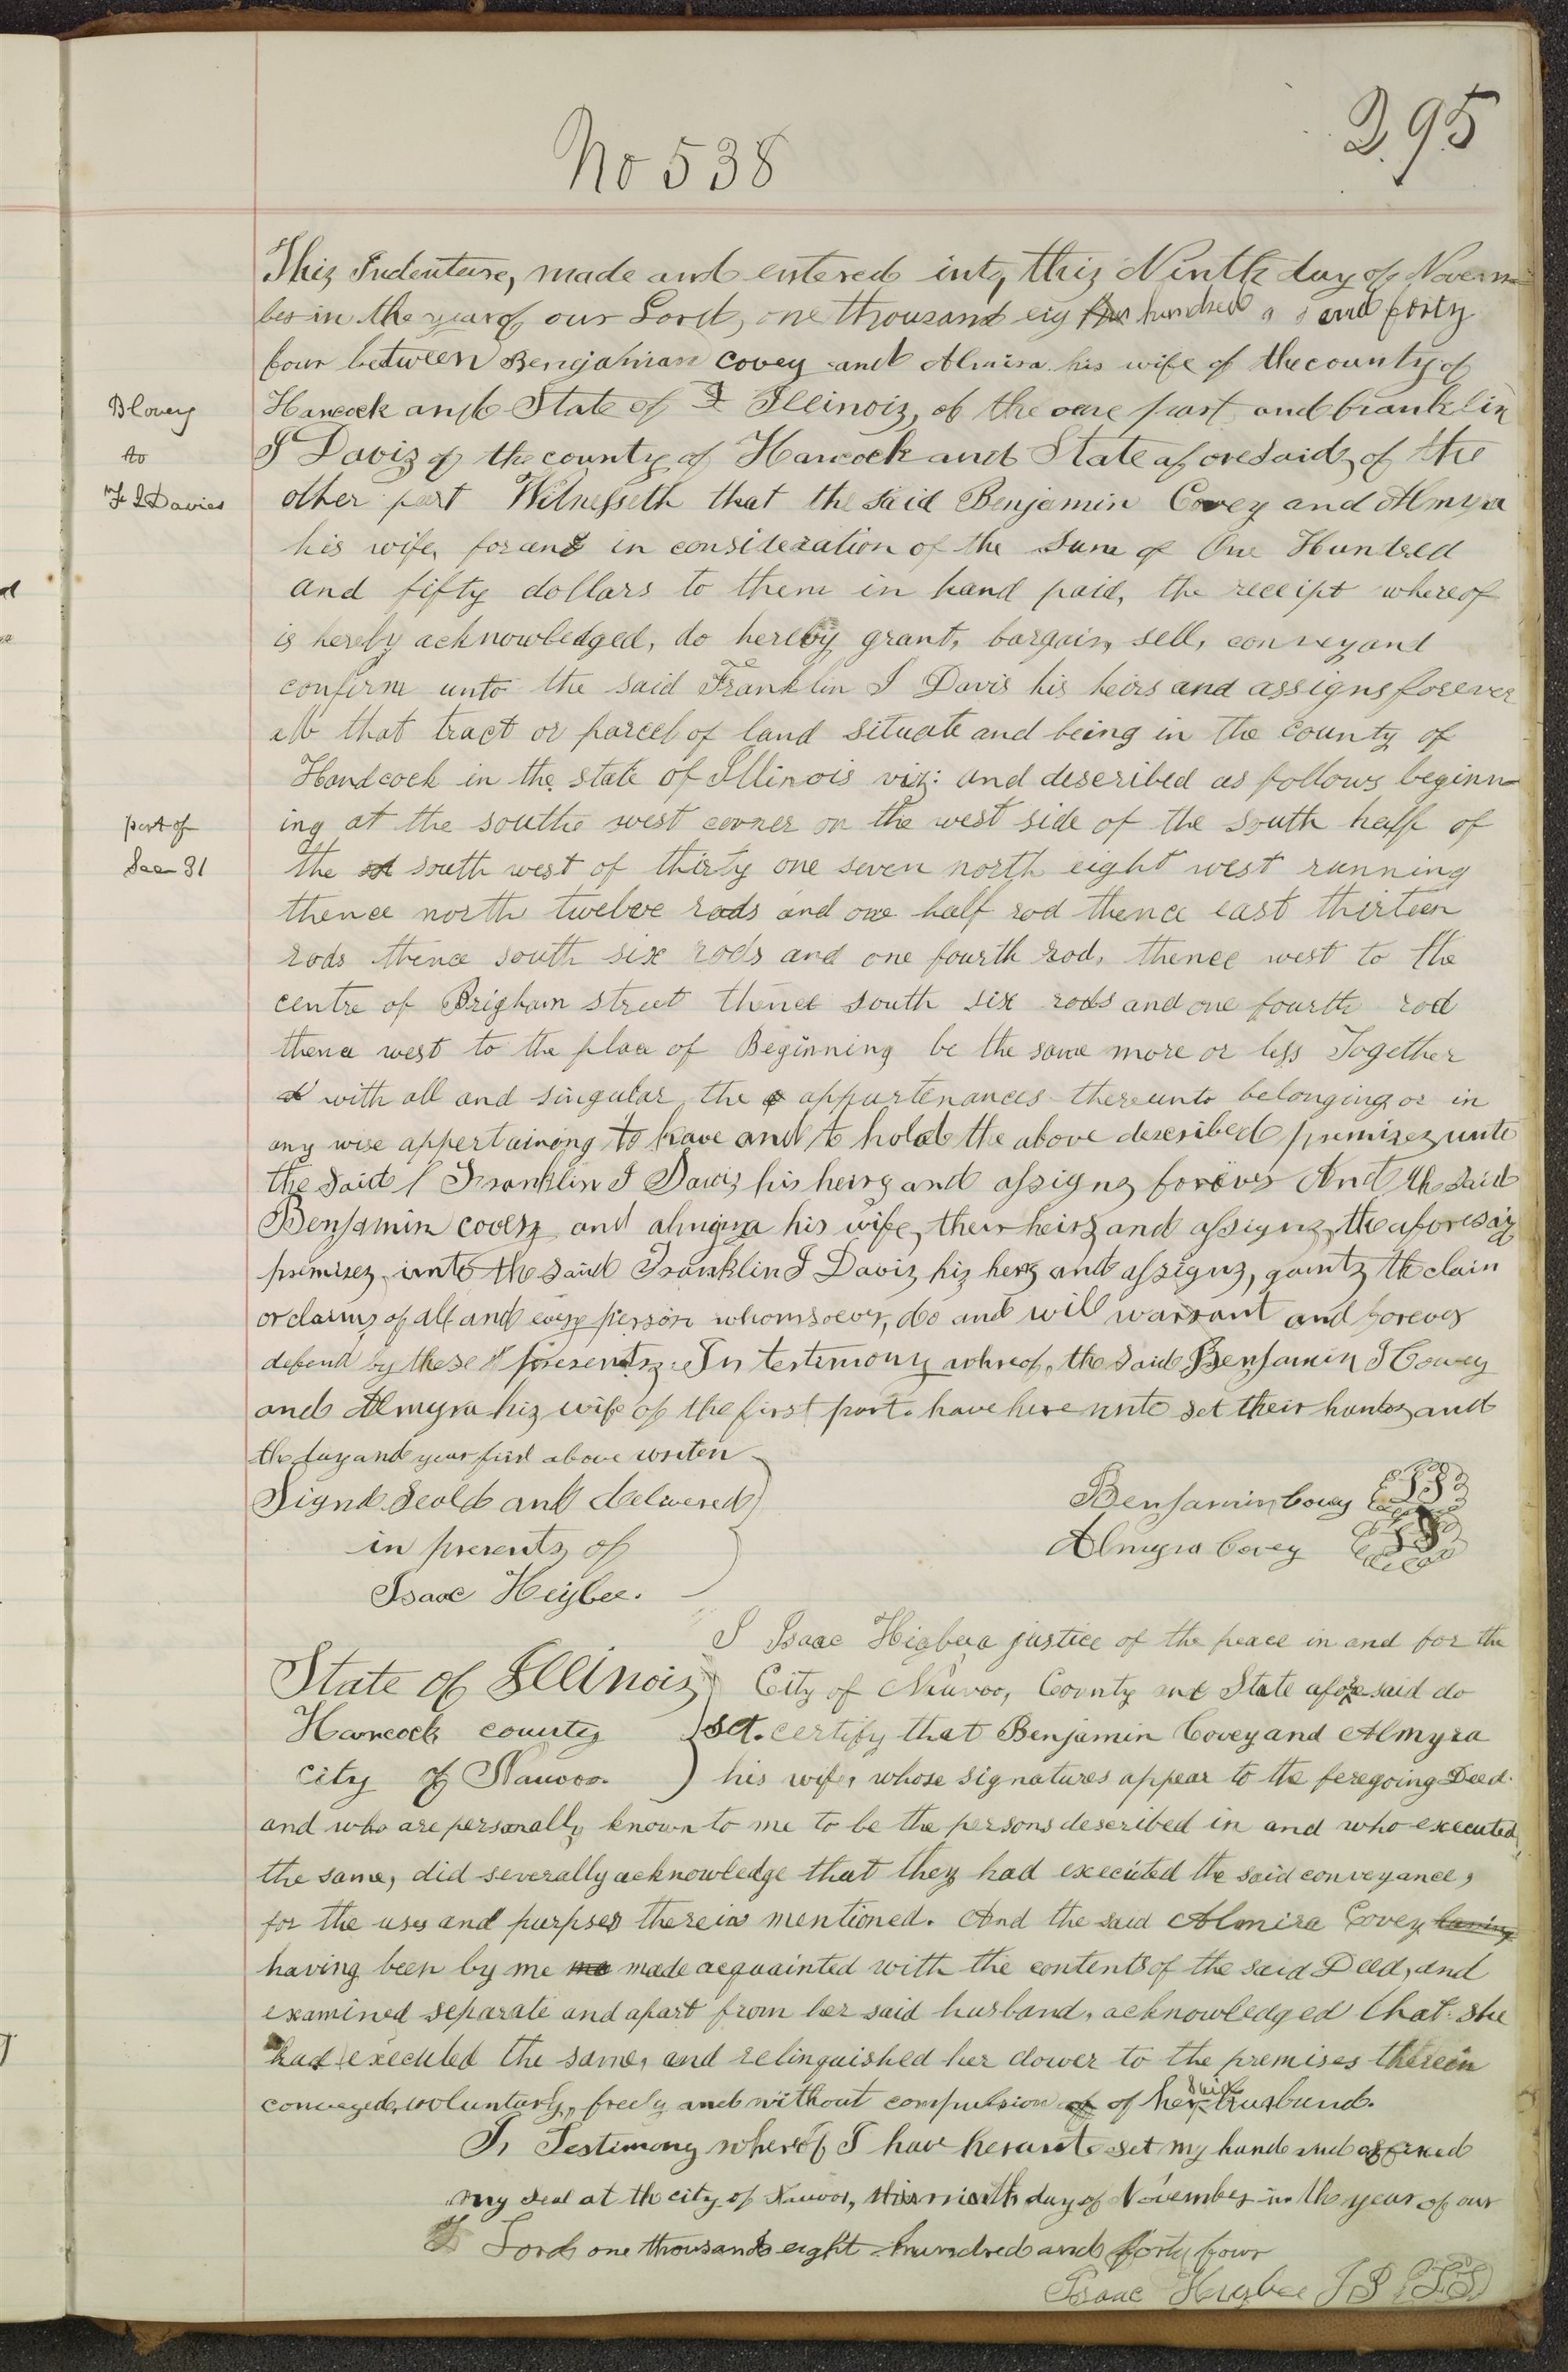 295
No 538
This Indenture, made and entered into, this Ninth day of Novem
ber in the year of our Lord, one thousand eig hundred and forty
four between Bengahman Covey and Almira his wife of the county of
B Covey
Hancock and State of I Illinois, of the one part and franklin
to
J Davis of the county of Hancock and State aforesaid, of the
F J Davies
other part Witnesseth that the said Benjamin Covey and Almyra
his wife, for and in consideration of the Sum of One Hundred
and fifty dollars to them in hand paid, the receipt whereof
is hereby acknowledged, do hereby grant, bargain, sell, convey and
confirm unto the said Franklin J Davis his heirs and assigns forever
all that tract or parcel of land situate and being in the County of
Handcock in the state of Illinois viz: and described as follows beginn-
part of
ing at the southe west corner on the west side of the south half of
Sec 31
the st south west of thirty one seven north eight west running
thence north twelve rods and one half rod thence east thirteen
rods thence south six rods and one fourth rod, thence west to the
centre of Brigham street thence south six rods and one fourth rod
thence west to the place of Beginning be the same more or less Together
with all and singular the appurtenances thereunto belonging or in
any wise appertaining to have and to hold the above described premises unto
the said Franklin J Davis his heirs and assigns forever And the said
Benjamin covey and almyra his wife, their heirs and assigns, the aforesai
premises, unto the said Franklin J Davis, his heirs and assigns, gaints the claim
or claims, of all and every person whomsoever, do and will warrant and forever
defend by these presents. In testimony whreof, the said Benjamin Covey
and Almyra his wife of the first part. have here unto set their hands, and
the day and year first above writen
Signd Seald and delivered
Benjamin Covey LS
in presents of
Almyra Covey LS
Isaac Heigbee.
I Isaac Higbee a justice of the peace in and for the
State of Illinois
City of Nauvoo, County and State afore said do
Hancock county
sct. certify that Benjamin Covey and Almyra
city of Nauvoo.
his wife, whose signatures appear to the feregoing Deed.
and who are personally known to me to be the persons described in and who executed
the same, did severally acknowledge that they had executed the said conveyance,
for the uses and purpses therein mentioned. And the said Almira Covey having
having been by me ma made acquainted with the contents of the said Deed, and
examined separate and apart from her said husband, acknowledged that she
had executed the same, and relinquished her dower to the premises therein
conveyed, voluntarly, freely and without compulsion of of her said husband.
In Testimony whereof I have herunto set my hand and affixed
my seal at the city of Nauvoo, this ninth day of November in the year of our
Lord one thousand eight hundred and forty four
Isaac Higbee J P LS